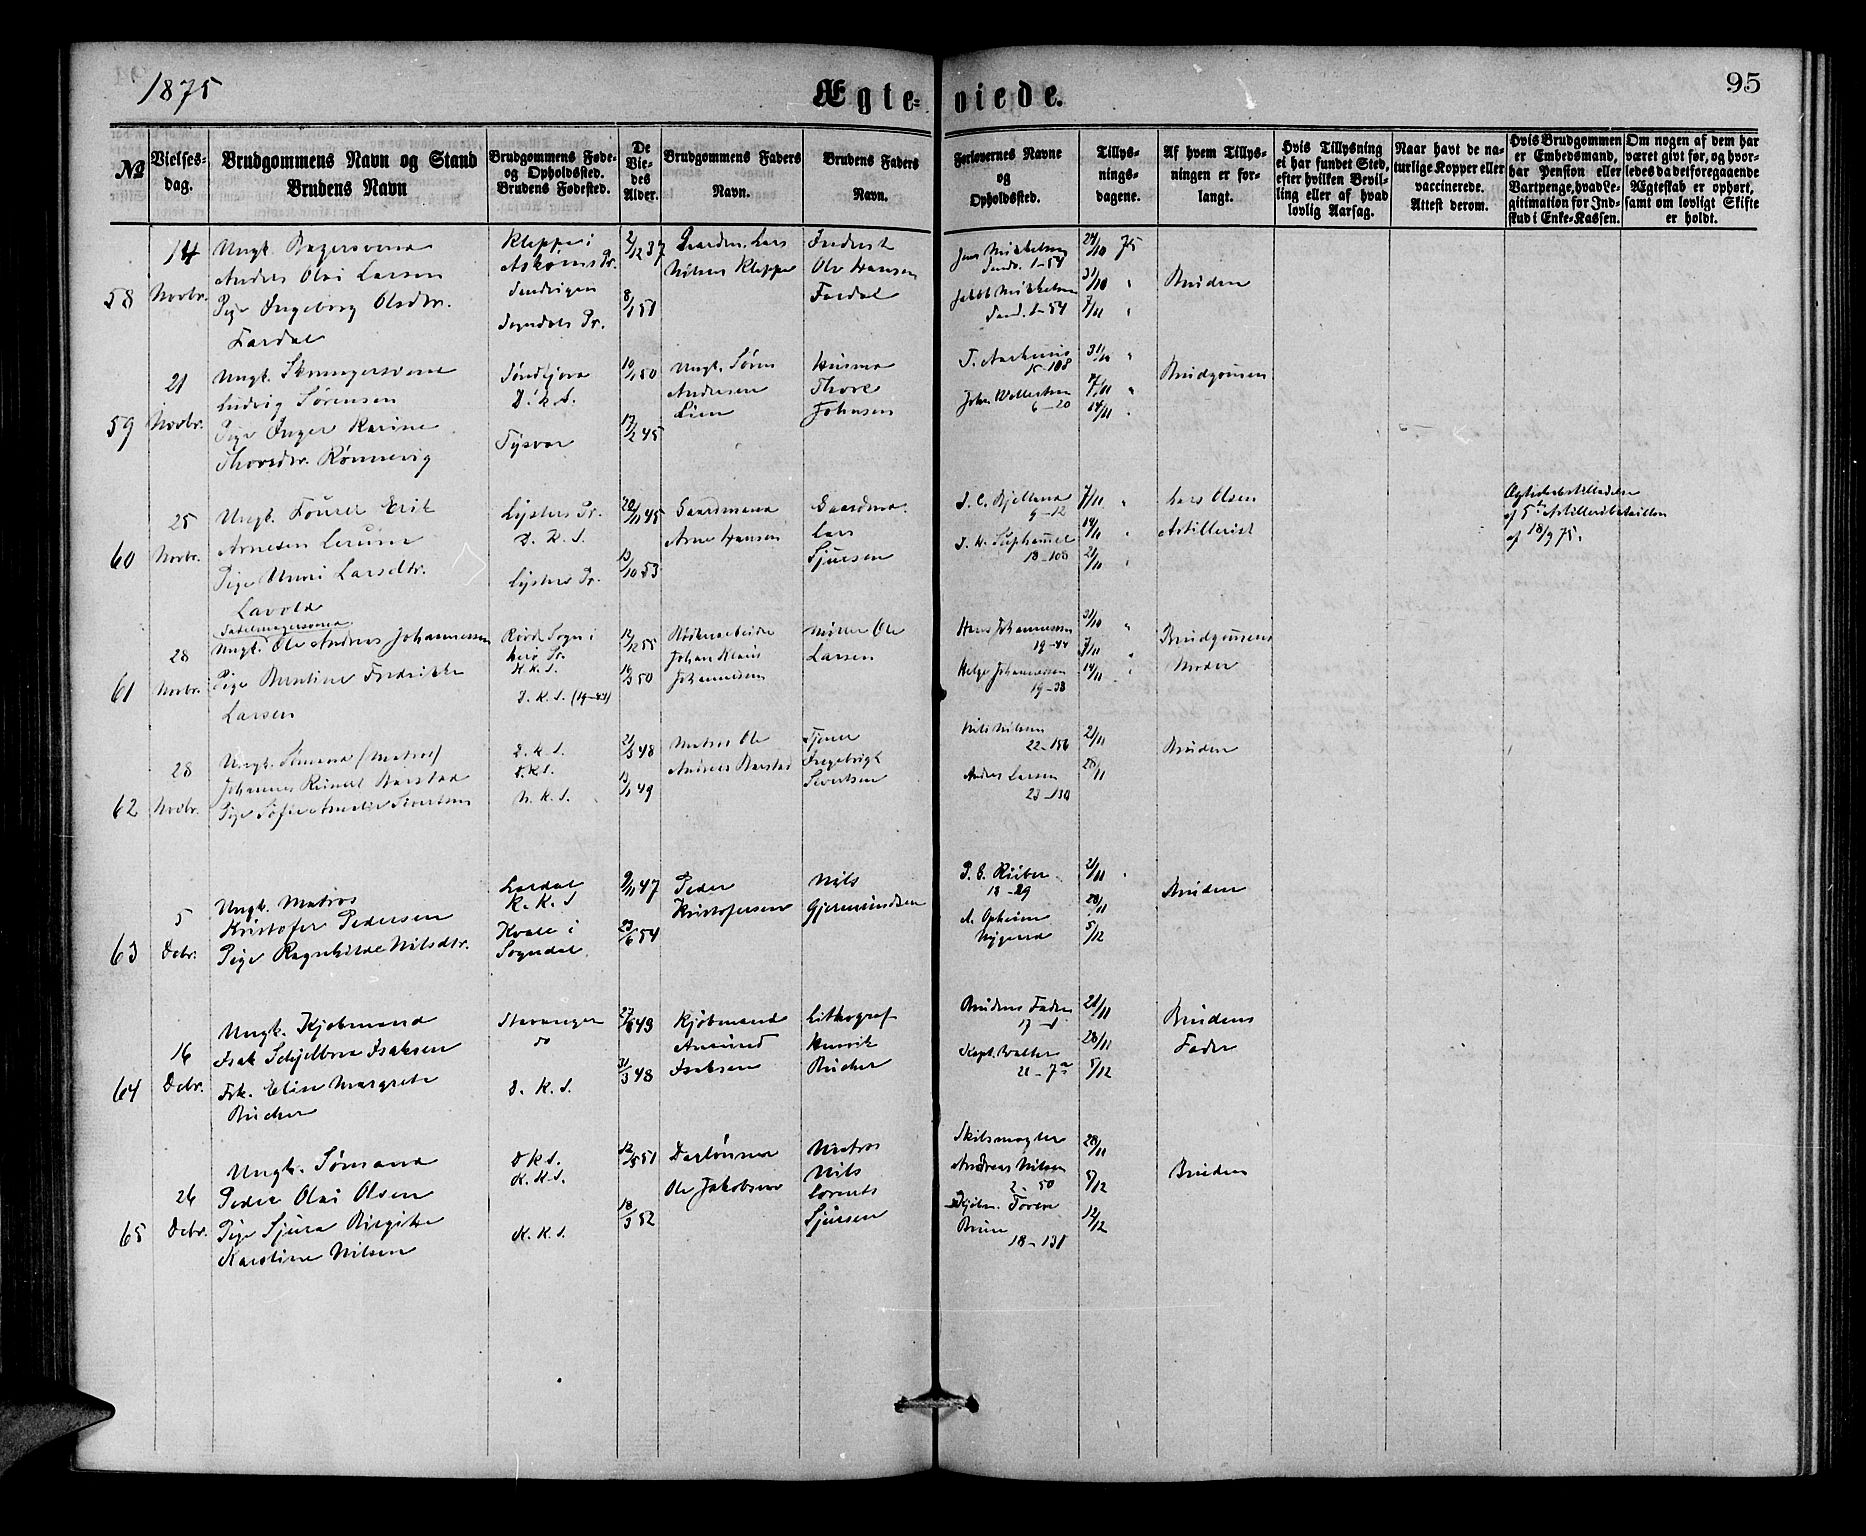 1875
Ægte=viede.
95
No
Vielses-dag.
Brudgommens Navn og Stand
Brudens Navn
Brudgommens Føde- og Opholdssted.
Brudens Fødested.
De Vie-des Alder.
Brudgommens Faders Navn.
Brudens Faders Navn.
Forlovernes Navne og Opholdssted.
Tillys-nings-dagene.
Af hvem Tillys-ningen er for-langt.
Hvis Tillysning ei har fundet Sted, efter hvilken Bevil-ling eller af hvad lovlig Aarsag.
Naar havt de na-turlige Kopper eller vaccinerede. Attest derom.
Hvis Brudgommen er Embedsmand, har Pension eller Vartpenge, hvad Le-gitimation for Ind-skud i Enke-Kassen.
Om nogen af dem har været givt før, og hvor-ledes da det foregaaende Ægteskab er ophørt, samt om lovligt Skifte er holdt.
58
14 Novbr.
Ungk. Bagersvend
Anders Olai Larsen
Pige Ingeborg Olsdtr.
Fardal
Kleppe i
Askøens Pr.
Sogndals Pr.
2/12 37
8/1 51
Gaardm. Lars
Nilsen Kleppe
Inderst
Ole Hansen
Fardal
Jens Mikkelsen
Sandv. 1-54
Jakob Mikkelsen
Sand. 1-54
24/10 75
31/10 "
7/11 "
Bruden
59
21 Novbr.
Ungk. Skomagersvend
Ludvig Sørensen
Pige Inger Karine
Thoresdtr. Rønnevig
Søndfjord
D.k.S.
Tysvær
10/1 50
17/2 45
Ungk. Søren
Andersen
Lien
Husmd
Thore
Johnsen
T. Aarhuus
15-108
Johs. Wollertsen
6-20
31/10 "
7/11 "
14/11 "
Brudgomen
60
25 Novbr.
Ungk. Fourer Erik
Arnesen Lerum
Pige Unni Larsdtr.
Lavold
Lysters Pr.
D.K.S.
Lysters Pr.
20/11 45
13/10 53
Gaardmand
Arne Hansen
Gaardmd.
Lars
Sjursen
J. C. Bjelland
9-12
18-108
7/11 "
14/11 "
21/11 "
Lars Olsen
Artillerist
Ægteskabstilladelse
af 5te Artilleribataillon
af 18/9 75.
61
28 Novbr.
Sadelmagersvend
Ungk. Ole Andreas Johannessen
Pige Berntine Fredrikke
Larsen
Sogn i
Herø Pr.
K.K.S.
D.K.S. (19-44)
12/12 55
16/3 50
Johan Klaus
Johannesen
Møller Ole
Larsen
Hans Johannessen
19-44
Helge Johannessen
19-38
31/10 "
7/11 "
14/11 "
Brudgomens
Moder
62
28 Novbr.
Ungk. Sømand (Matros)
Johannes Reinert Barstad
Pige Sofie Amalie Sivertsen
D.K.S.
D.K.S.
N.K.S.
21/3 48
13/1 49
Matros Ole
Andreas Barstad
Tjener
Ingebrigt
Sivertsen
Nils Nilsen
22-156
Andreas Larsen
23-130
21/11
28/11
Bruden
63
5 Debr.
Ungk. Matros
Kristofer Pedersen
Pige Ragnhilde Nilsdtr.
Lærdal
K.K.S
Kvale i
Sogndal
9/11 47
23/6 54
Peder
Kristofersen
Nils
Gjermundsen
P. G. Rieber
13-29
A. Opheim
Nygaard
21/11 "
28/11
5/12
Bruden
64
16 Debr.
Ungk. Kjøbmand
Isak Schjelbred Isaksen
Frk. Elise Margrete
Bücher
Stavanger
do
D.K.S.
27/8 43
31/3 48
Kjøbmand
Amund
Isaksen
Lithograf
Henrik
Bücher
Brudens Fader
17-1
Kapt. Walter
21-7a
21/11
28/11
5/12
Brudens
Fader
65
26 Debr.
Ungk. Sømand
Peder Olai Olsen
Pige Sjura Birgitte
Karstine Nilsen
D.K.S.
K.K.S.
K.K.S.
12/5 51
18/3 52
Daglønner
Ole Jakobsen
Matros
Nils
Lorents
Sjursen
Skibsmægler
Andreas Nilsen
2-50
Kjøbm. Torger
Bruun
18-131
28/11
5/12
12/12
Bruden